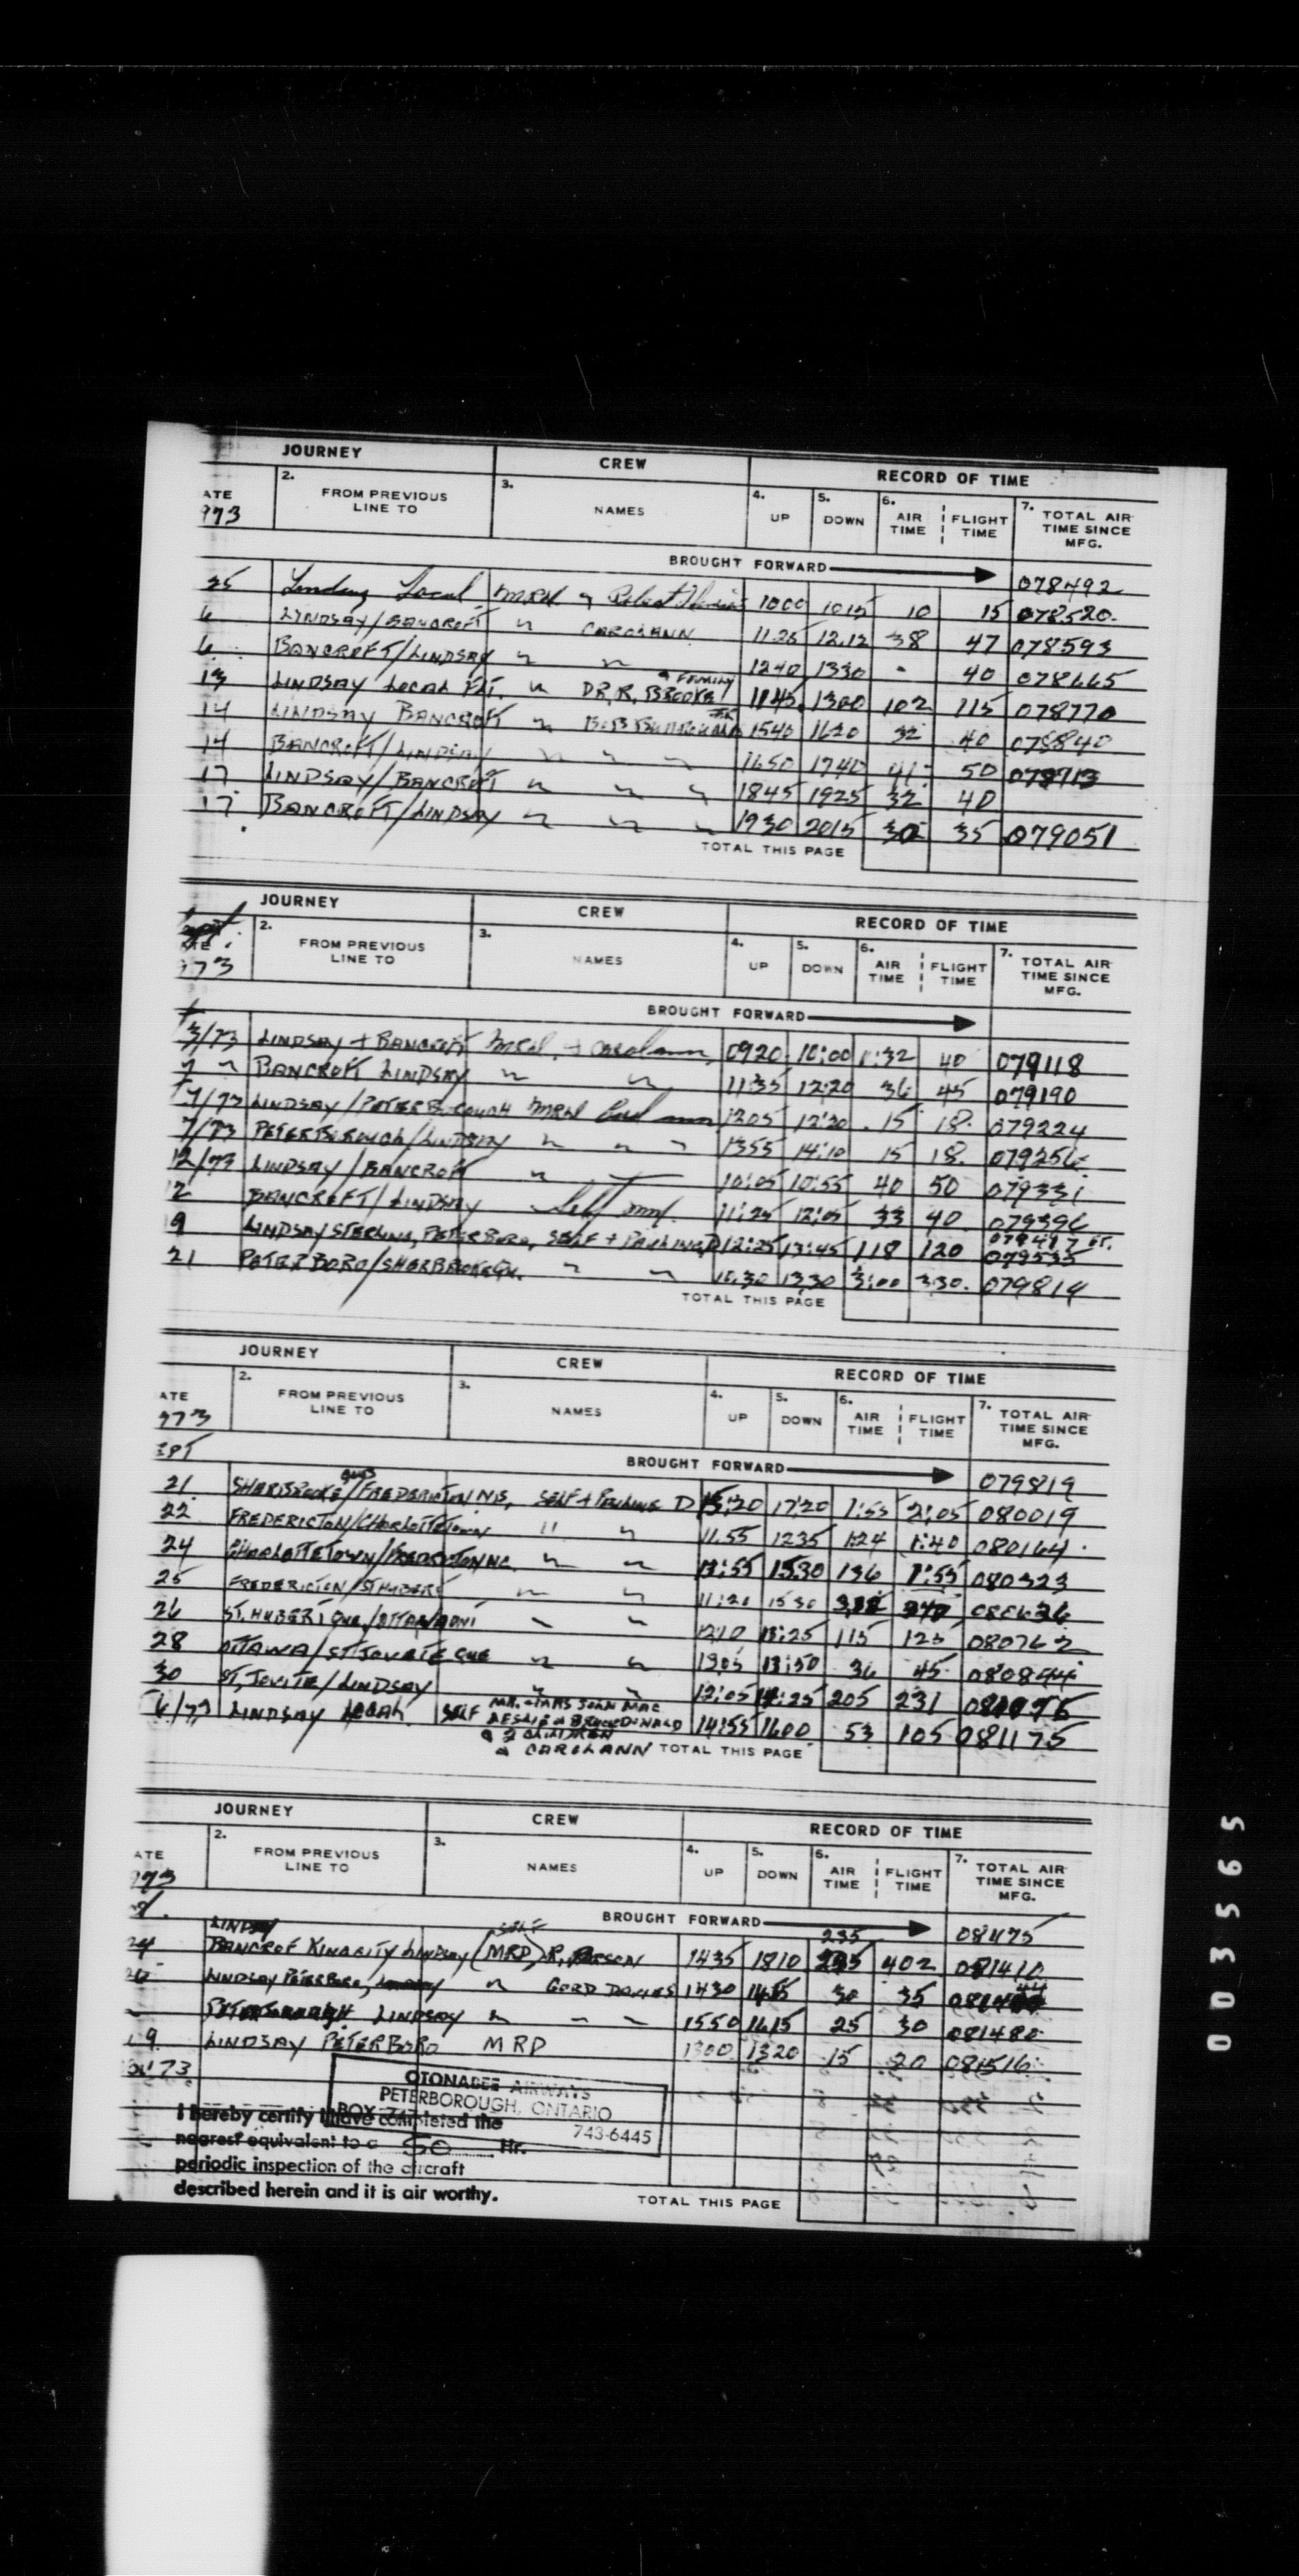 JOURNEY CREW RECORD OF TIME
ATE 2. FROM PREVIOUS LINE TO 3. NAMES 4. UP 5. DOWN 6. AIR TIME FLIGHT TIME 7. TOTAL AIR TIME SINCE MFG.
973
BROUGHT FORWARD 078492
25 Local 1000 1015 10 15 078520
6 LYNDSAY/BANCROFT " CAROLANN 1125 1212 38 47 078593
6 BANCROFT/LINDSAY " " 1240 1330 - 40 078665
13 LINDSAY LOCAL FLT. " DR. R. BROOKE & FAMILY 1145 1300 102 115 078770
14 LINDSAY BANCROFT " 1540 1620 32 40 078840
14 BANCROFT/LINDSAY " " " 1650 1740 41 50 078913
17 LINDSAY/BANCROFT " " " 1845 1925 32 40
17 BANCROFT/LINDSAY " " " 1930 2015 30 35 079051
TOTAL THIS PAGE
JOURNEY CREW RECORD OF TIME
2. FROM PREVIOUS LINE TO 3. NAMES 4. UP 5. DOWN 6. AIR TIME FLIGHT TIME 7. TOTAL AIR TIME SINCE MFG.
973
BROUGHT FORWARD
3/73 LINDSAY + BANCROFT + Carolann 0920 10:00 :32 40 079118
" " BANCROFT LINDSAY " " 11:35 12:20 36 45 079190
7/73 LINDSAY/PETERBOROUGH 1205 12:20 15 18 079224
7/73 PETERBOROUGH/LINDSAY " " " 1355 14:10 15 18 079256
12/73 LINDSAY/BANCROFT " 10:05 10:55 40 50 079331
2 BANCROFT/LINDSAY Self 11:25 12:05 33 40 079396
9 LINDSAY STERLING, PETERBORO, SELF + PAULINE D 12:25 13:45 118 120 079535
21 PETERBORO/SHERBROKE QU. " " 10:30 1330 3:00 3:30 079819
TOTAL THIS PAGE
JOURNEY CREW RECORD OF TIME
ATE 2. FROM PREVIOUS LINE TO 3. NAMES 4. UP 5. DOWN 6. AIR TIME FLIGHT TIME 7. TOTAL AIR TIME SINCE MFG.
973
BROUGHT FORWARD 079819
21 SHERBROOKE QUE/FREDERICTON NB, SELF + PAULINE D 15:20 17:20 1:55 2:05 080019
22 FREDERICTON/CHARLOTTETOWN " " 11.55 1235 1:24 1:40 080164
24 CHARLOTTETOWN/FREDERICTON " " 13:55 1530 136 1:55 080323
25 FREDERICTON/ST HUBERT " " 11:20 1530 080626
26 ST. HUBERT QUE/OTTAWA ONT " " 1210 13:25 115 125 080762
28 OTTAWA/ST JOVITE QUE " " 1305 13:50 36 45 080844
30 ST, JOVITE/LINDSAY " " 12:05 14:25 205 231
6/73 LINDSAY LOCAL SELF 14:55 1600 53 105 081175
& 2 CHILDREN
& CAROLANN TOTAL THIS PAGE
JOURNEY CREW RECORD OF TIME
ATE 2. FROM PREVIOUS LINE TO 3. NAMES 4. UP 5. DOWN 6. AIR TIME FLIGHT TIME 7. TOTAL AIR TIME SINCE MFG.
973
BROUGHT FORWARD 081175
LINDSAY SELF 235
24 BANCROF LINDSAY (MRD) R. 1435 1810 402 081410
LINDSAY PETERBORO, " GORD DAVIES 1430 30 35
LINDSAY " " " 1550 1615 25 30 081480
9 LINDSAY PETERBORO MRD 1300 1320 15 20 081516
73
OTONABEE AIRWAYS
PETERBOROUGH, ONTARIO
BOX 743-6445
I hereby certify I have completed the
nearest equivalent to a 50 Hr.
periodic inspection of the aircraft
described herein and it is air worthy.
TOTAL THIS PAGE
003565